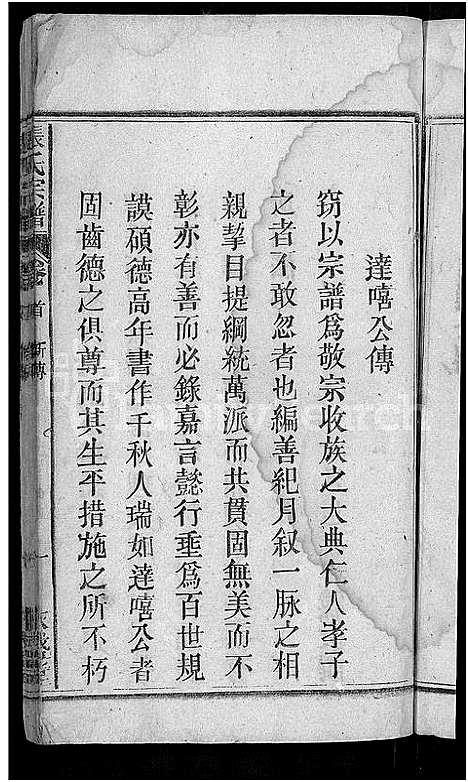 達嘻公傳
窃以宗譜爲敬宗收族之大典仁人孝子
之者不敢忽者也編善紀月叙一脉之相
親挈目提綱統萬派而共貫固無美而不
彰亦有善而必錄嘉言懿行垂爲百世規
謨碩德高年書作千秋人瑞如達嘻公者
固齒德之俱尊而其生平措施之所不朽
張氏宗譜
首
新傳
一